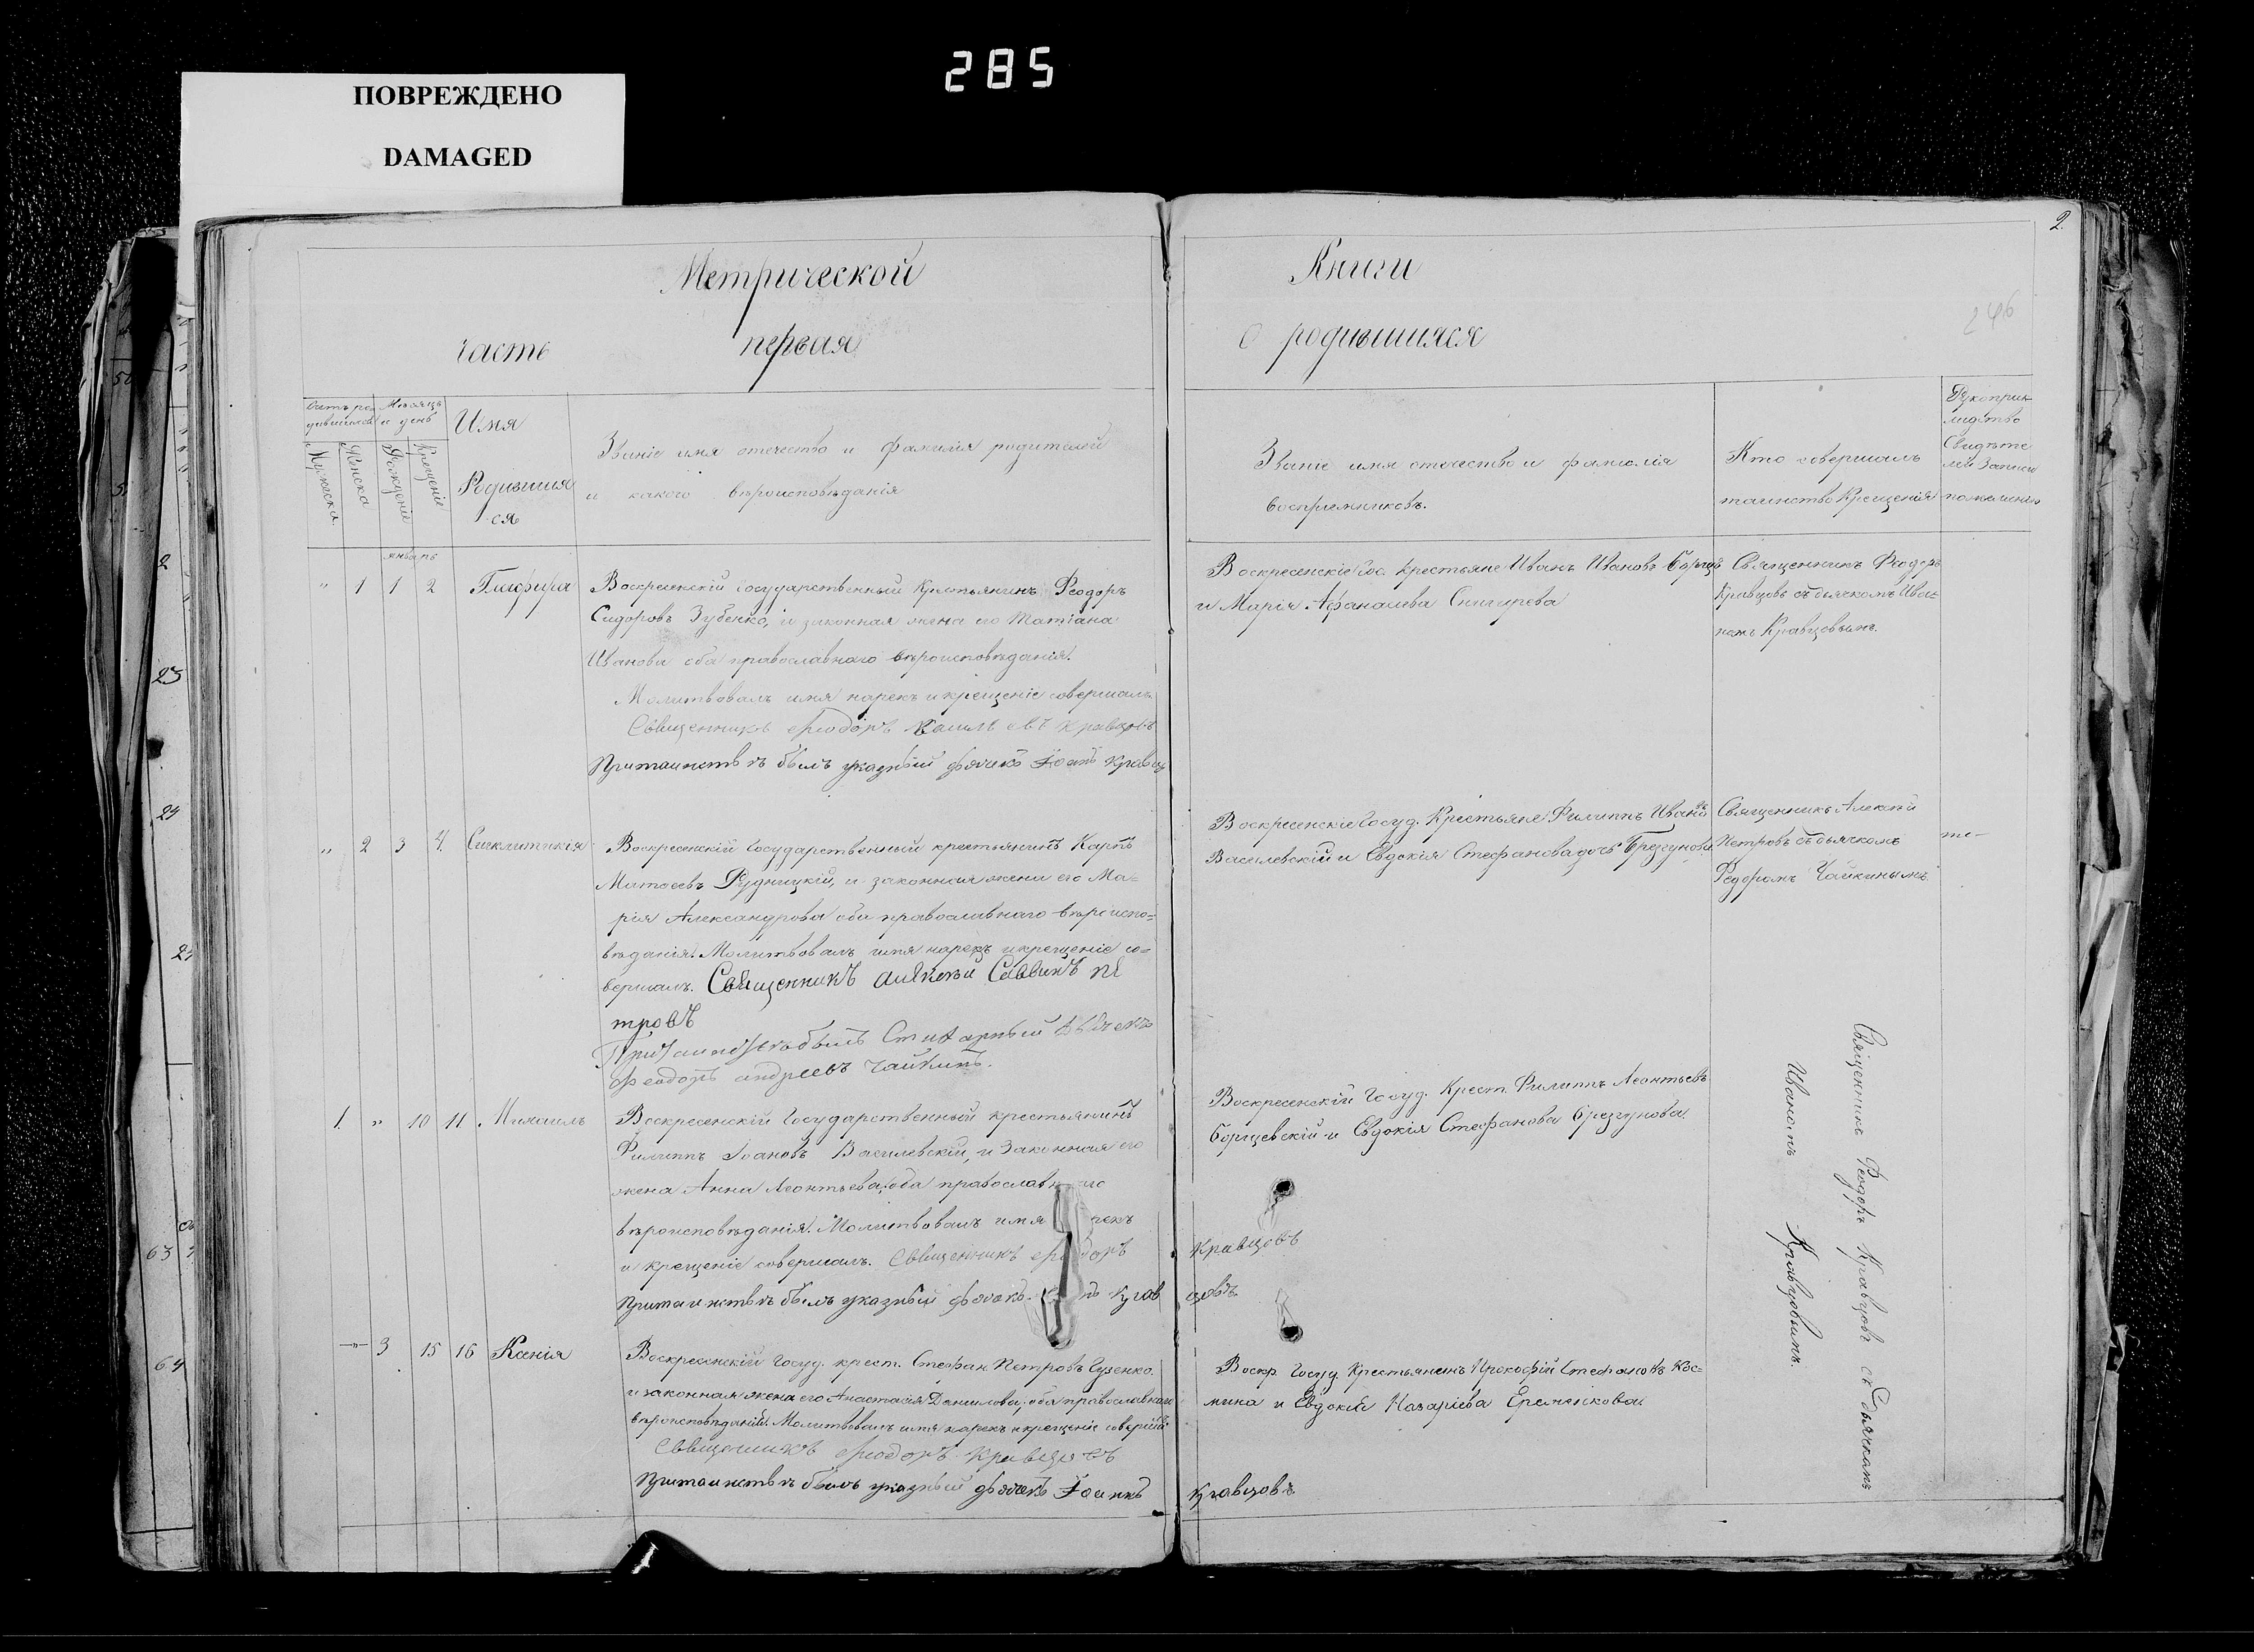 285
ПОВРЕЖДЕНО
DAMAGED
2.
246
Метрической
Книги
часть первая
о родившихся
Счетъ ро
дившихся
Мужеска
Женска
Мѣсяцъ
и день
Рожденіе
Крещеніе
Имя
Родивших
ся
Званіе имя отечество и фамилія родителей
и какого вѣроисповѣданія
Званіе имя отечество и фамилія
восприемниковъ.
Кто совершалъ
таинство Крещенія
Рукоприк
ладство
Свидѣте
лей записи
январь
" 1 1 2 Глафира
Воскресенскій Государственный Крестьянинъ Феодоръ
Сидоровъ Зубенко, и законная жена его Татіана
Иванова оба православнаго вѣроисповѣданія.
Молитвовалъ имя нарекъ и крещеніе совершалъ
Священникъ Феодоръ Кравцовъ
При таинствѣ былъ указный дьячекъ Іоаннъ Кравц
Воскресенскіе Гос. крестьяне Иванъ Ивановъ
и Марія Афанасіева Снигирева
Священникъ Феодоръ
Кравцовъ съ дьячкомъ Ива=
номъ Кравцовымъ.
" 2 3 4. Синклитикія
Воскресенскій Государственный крестьянинъ Карпъ
Матвеевъ Рудницкій, и законная жена его Ма=
рія Александрова оба православнаго вѣроиспо=
вѣданія. Молитвовалъ имя нарекъ и крещеніе со=
вершалъ. Священникъ Алексѣй Саввинъ Пе
тровъ
При таинствѣ былъ Стихарный дьячекъ
Феодоръ Андреевъ Чайкинъ.
Воскресенскіе Госуд. Крестьяне Филиппъ Ивановъ
Василевскій и Евдокія Стефанова дочь Брезгунова
Священникъ Алексѣй
Петровъ съ дьячкомъ
Федоромъ Чайкинымъ
те—
1. " 10 11. Михаилъ
Воскресенскій Государственный крестьянинъ
Филиппъ Іоановъ Василевскій, и законная его
жена Анна Леонтьева, оба православнаго
вѣроисповѣданія. Молитвовалъ имя рекъ
и крещеніе совершалъ. Священникъ доръ
Кравцовъ
При таинствѣ былъ указный дьячекъ нъ Крав
цовъ
Воскресенскій Госуд. Крест. Филиппъ Леонтьевъ
Борщевскій и Евдокія Стефанова Брезгунова
Священникъ Феодоръ Кравцовъ съ дьячкомъ
Иваномъ Кравцовымъ.
—"— 3 15 16 Ксенія
Воскресенскій Госуд. крест. Стефан Петровъ
и законная жена его Анастасія Данилова, оба православнаго
вѣроисповѣданія. Молитвовалъ имя нарекъ и крещеніе совершалъ
Священникъ Феодоръ Кравцовъ
При таинствѣ былъ указный дьячекъ Іоаннъ
Кравцовъ
Воскр. Госуд. Крестьянинъ Прокофій Стефановъ Кос=
мина и Евдокій Назаріева Еременкова